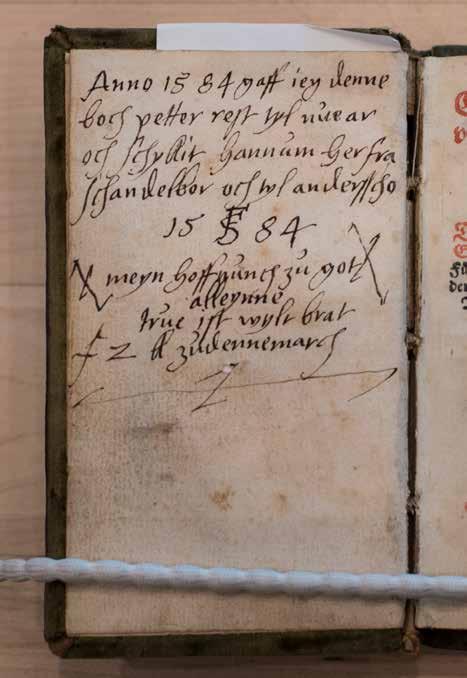 Anno 15 84 gaff iey denne
boch petter rest tyl nue ar
och schykkit hannum her fra
schandelbor och tyl andersscho
15 FS 84
meyn hoffnunch zu got
alleynne
true ist wylt brat
F 2 zudennemarch